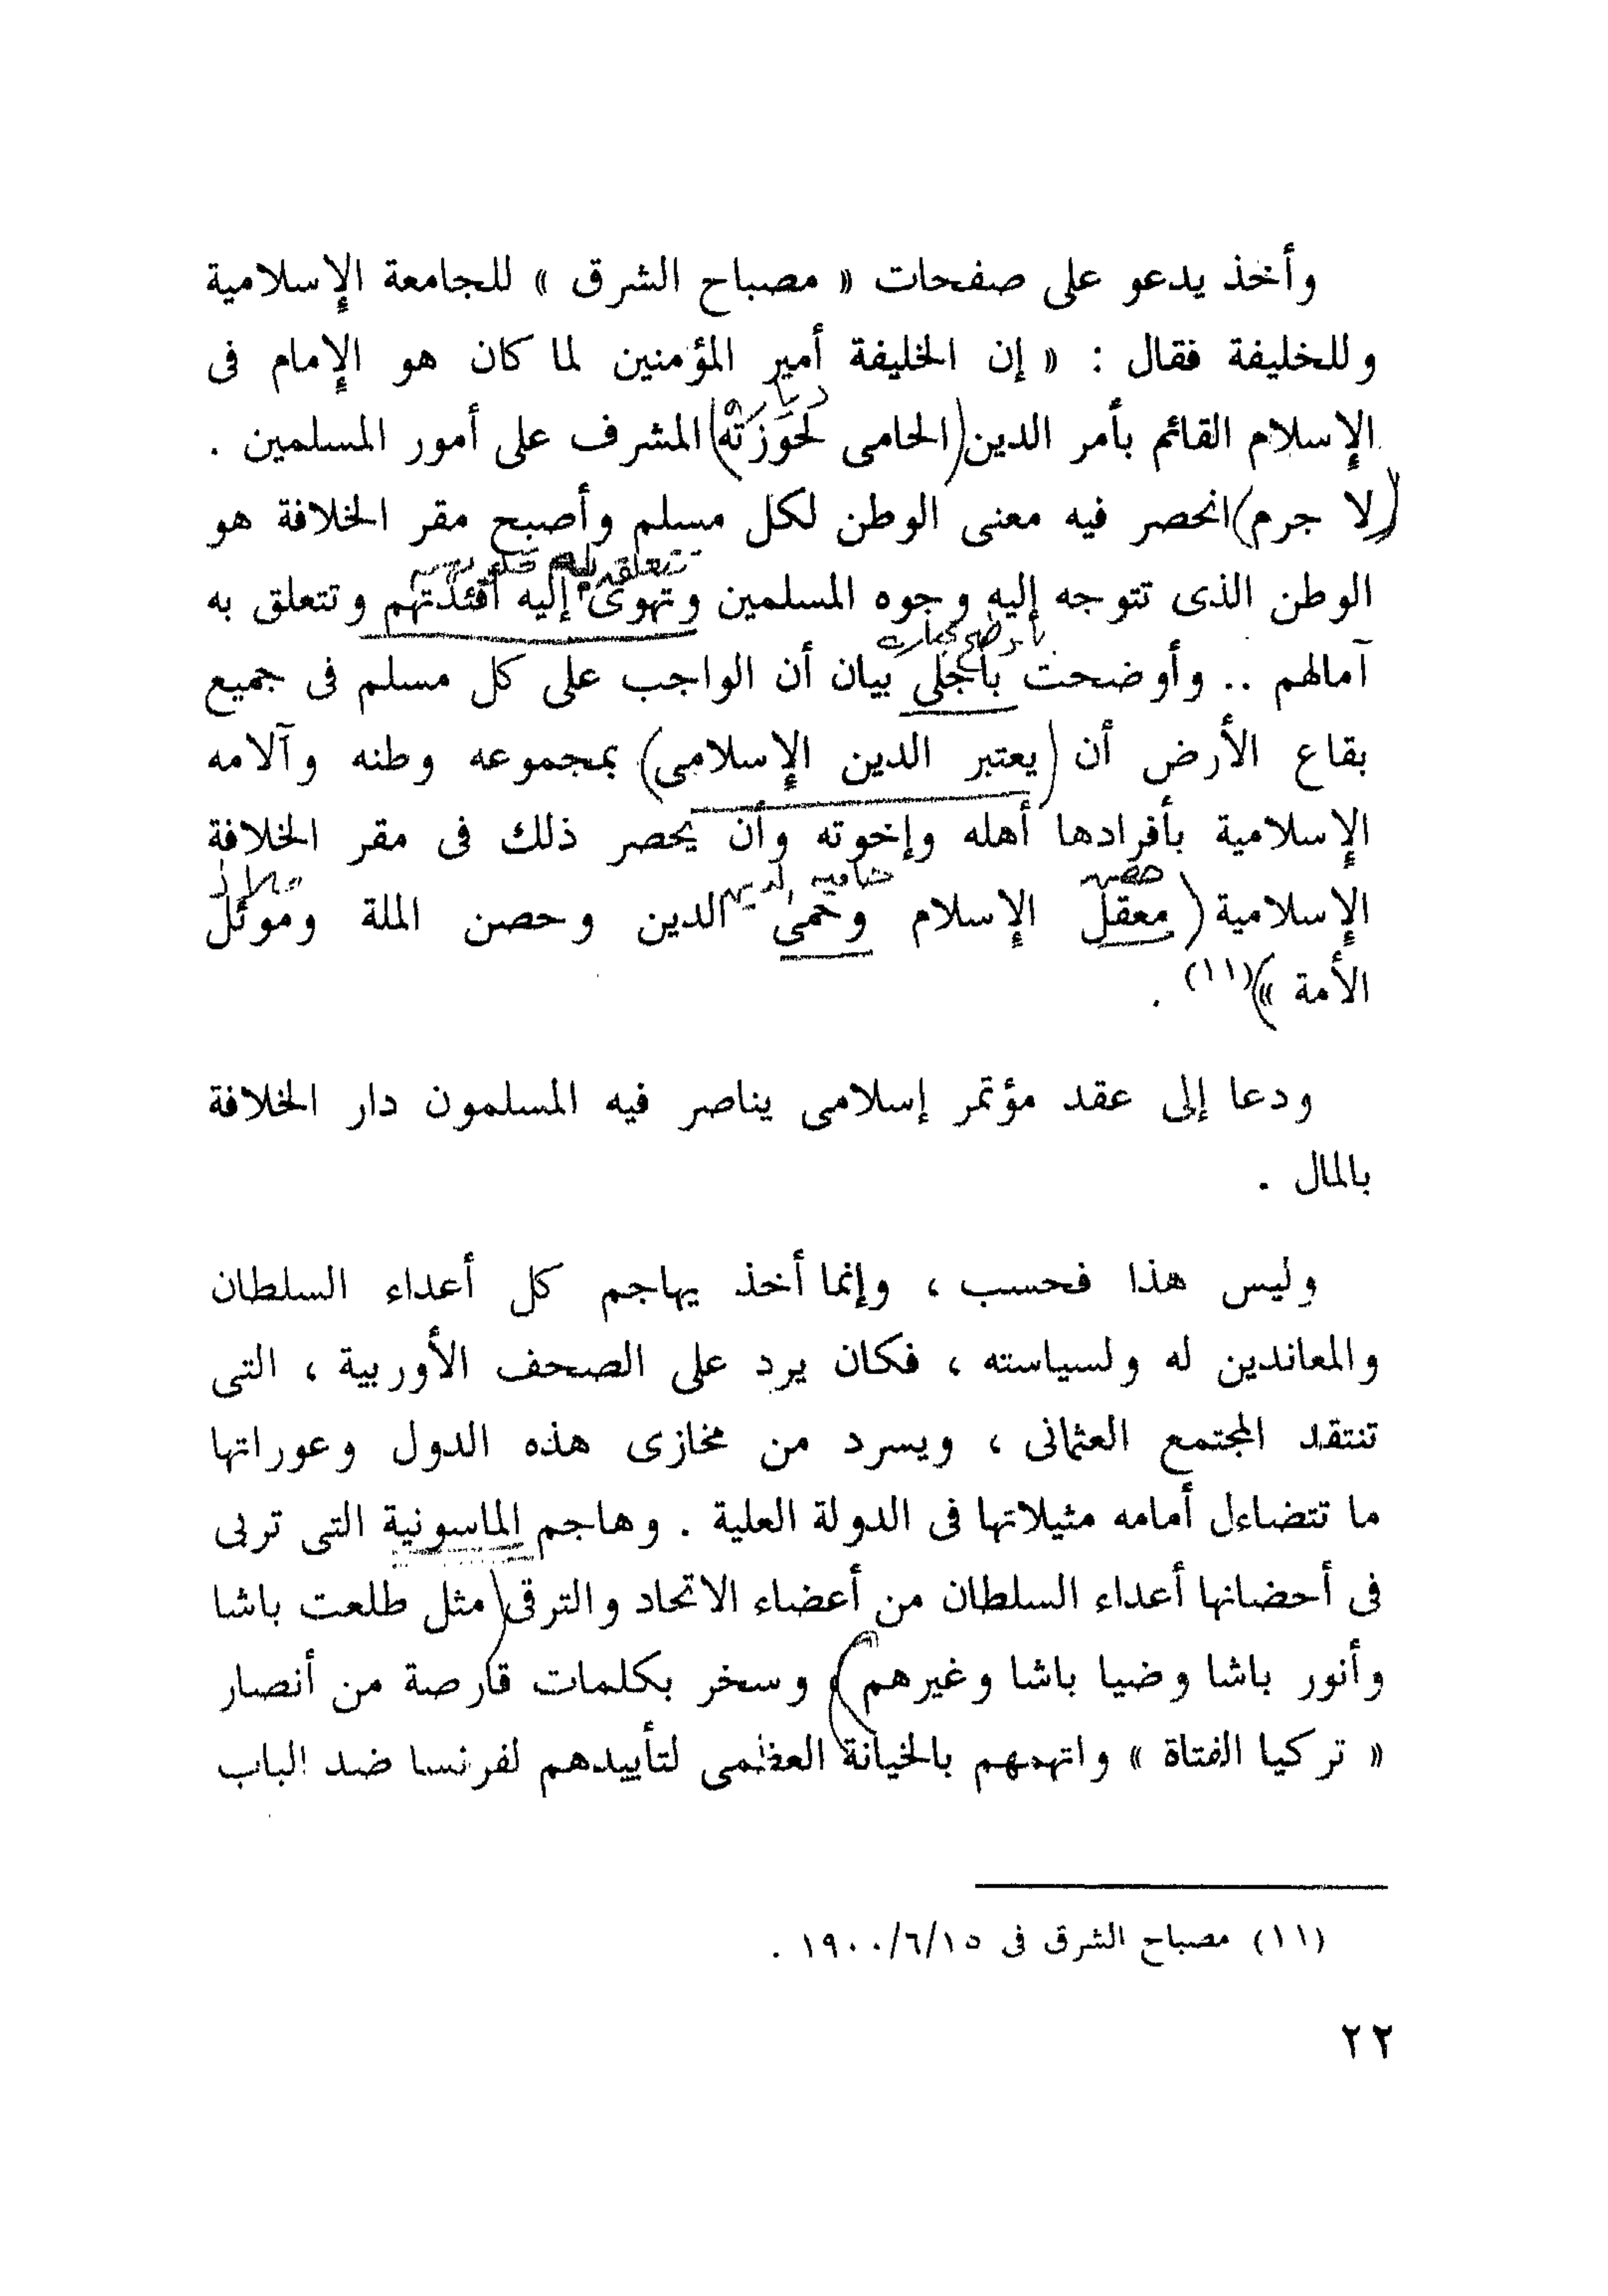 وأخذ يدعو على صفحات « مصباح الشرق » للجامعة الإسلامية
وللخليفة فقال : « إن الخليفة أمير المؤمنين لما كان هو الإمام فى
الإسلام القائم بأمر الدين (الحامى لحَوَزَتْه) المشرف على أمور المسلمين .
(لا جرم) انحصر فيه معنى الوطن لكل مسلم وأصبح مقر الخلافة هو
الوطن الذى تتوجه إليه وجوه المسلمين وتهوى إليه أفئدتهم وتتعلق به
آمالهم .. وأوضحت بأجلى بيان أن الواجب على كل مسلم فى جميع
بقاع الأرض أن (يعتبر الدين الإسلامى) بمجموعه وطنه وآلامه
الإسلامية بأفرادها أهله وإخوته وأن يحصر ذلك فى مقر الخلافة
الإسلامية (معقل الإسلام وحمى الدين وحصن الملة وموئل
الأمة »)(١١) .
ودعا إلى عقد مؤتمر إسلامى يناصر فيه المسلمون دار الخلافة
بالمال .
وليس هذا فحسب ، وإنما أخذ يهاجم كل أعداء السلطان
والمعاندين له ولسياسته ، فكان يرد على الصحف الأوربية ، التى
تنتقد المجتمع العثمانى ، ويسرد من مخازى هذه الدول وعوراتها
ما تتضاءل أمامه مثيلاتها فى الدولة العلية . وهاجم الماسونية التى تربى
فى أحضانها أعداء السلطان من أعضاء الاتحاد والترقى (مثل طلعت باشا
وأنور باشا وضيا باشا وغيرهم) وسخر بكلمات قارصة من أنصار
« تركيا الفتاة » واتهمهم بالخيانة العظمى لتأييدهم لفرنسا ضد الباب
(١١) مصباح الشرق فى ١٩٠٠/٦/١٥ .
٢٢